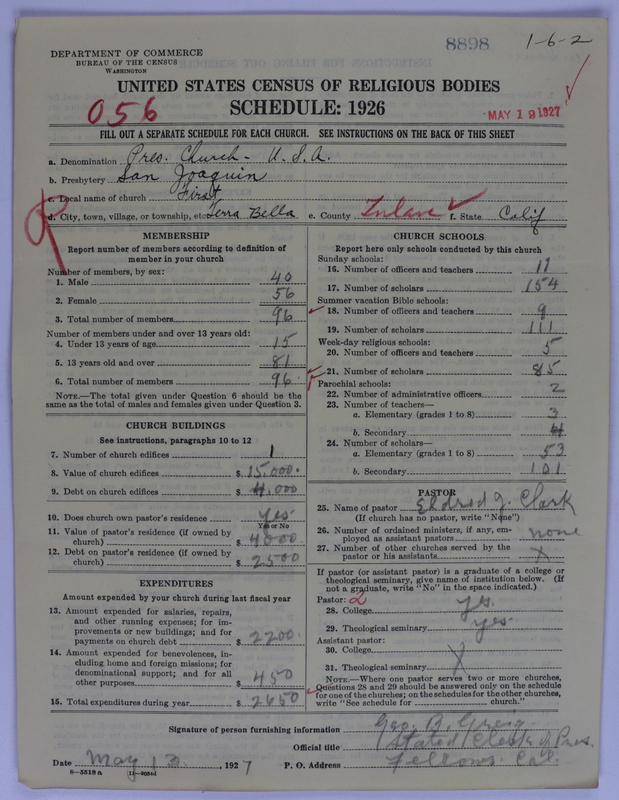 8898
1-6-2
DEPARTMENT OF COMMERCE
BUREAU OF THE CENSUS
WASHINGTON
UNITED STATES CENSUS OF RELIGIOUS BODIES
SCHEDULE: 1926
056
MAY 19 1927
FILL OUT A SEPARATE SCHEDULE FOR EACH CHURCH. SEE INSTRUCTIONS ON THE BACK OF THIS SHEET
a. Denomination Pres. Church - U.S.A.
b. Presbytery San Joaquin
c. Local name of church First
d. City, town, village, or township, etc. Terra Bella e. County Tulare f. State Calif
MEMBERSHIP
Report number of members according to definition of
member in your church
Number of members, by sex:
1. Male 40
2. Female 56
3. Total number of members 96
Number of members under and over 13 years old:
4. Under 13 years of age 15
5. 13 years old and over 81
6. Total number of members 96
NOTE.—The total given under Question 6 should be the
same as the total of males and females given under Question 3.
CHURCH BUILDINGS
See instructions, paragraphs 10 to 12
7. Number of church edifices 1
8. Value of church edifices $ 15,000.
9. Debt on church edifices $ 4,000
10. Does church own pastor's residence yes
Yes or No
11. Value of pastor's residence (if owned by
church) $ 4000
12. Debt on pastor's residence (if owned by
church) $ 2500
EXPENDITURES
Amount expended by your church during last fiscal year
13. Amount expended for salaries, repairs,
and other running expenses; for im-
provements or new buildings; and for
payments on church debt $ 2200.
14. Amount expended for benevolences, in-
cluding home and foreign missions; for
denominational support; and for all
other purposes $ 450
15. Total expenditures during year $ 2650
CHURCH SCHOOLS
Report here only schools conducted by this church
Sunday schools:
16. Number of officers and teachers 11
17. Number of scholars 154
Summer vacation Bible schools:
18. Number of officers and teachers 9
19. Number of scholars 111
Week-day religious schools:
20. Number of officers and teachers 5
21. Number of scholars 85
Parochial schools:
22. Number of administrative officers 2
23. Number of teachers—
a. Elementary (grades 1 to 8) 3
b. Secondary 4
24. Number of scholars—
a. Elementary (grades 1 to 8) 53
b. Secondary 101
PASTOR
25. Name of pastor Eldred J. Clark
(If church has no pastor, write "None")
26. Number of ordained ministers, if any, em-
ployed as assistant pastors none
27. Number of other churches served by the
pastor or his assistants X
If pastor (or assistant pastor) is a graduate of a college or
theological seminary, give name of institution below. (If
not a graduate, write "No" in the space indicated.)
Pastor: 2
28. College yes.
29. Theological seminary yes
Assistant pastor:
30. College
31. Theological seminary X
NOTE.—Where one pastor serves two or more churches,
Questions 28 and 29 should be answered only on the schedule
for one of the churches; on the schedules for the other churches,
write "See schedule for church."
Signature of person furnishing information Geo. B. Greig
Official title Stated Clerk of Pres.
Date May 13, 1927 P. O. Address Fellows. Cal.
8—5518a